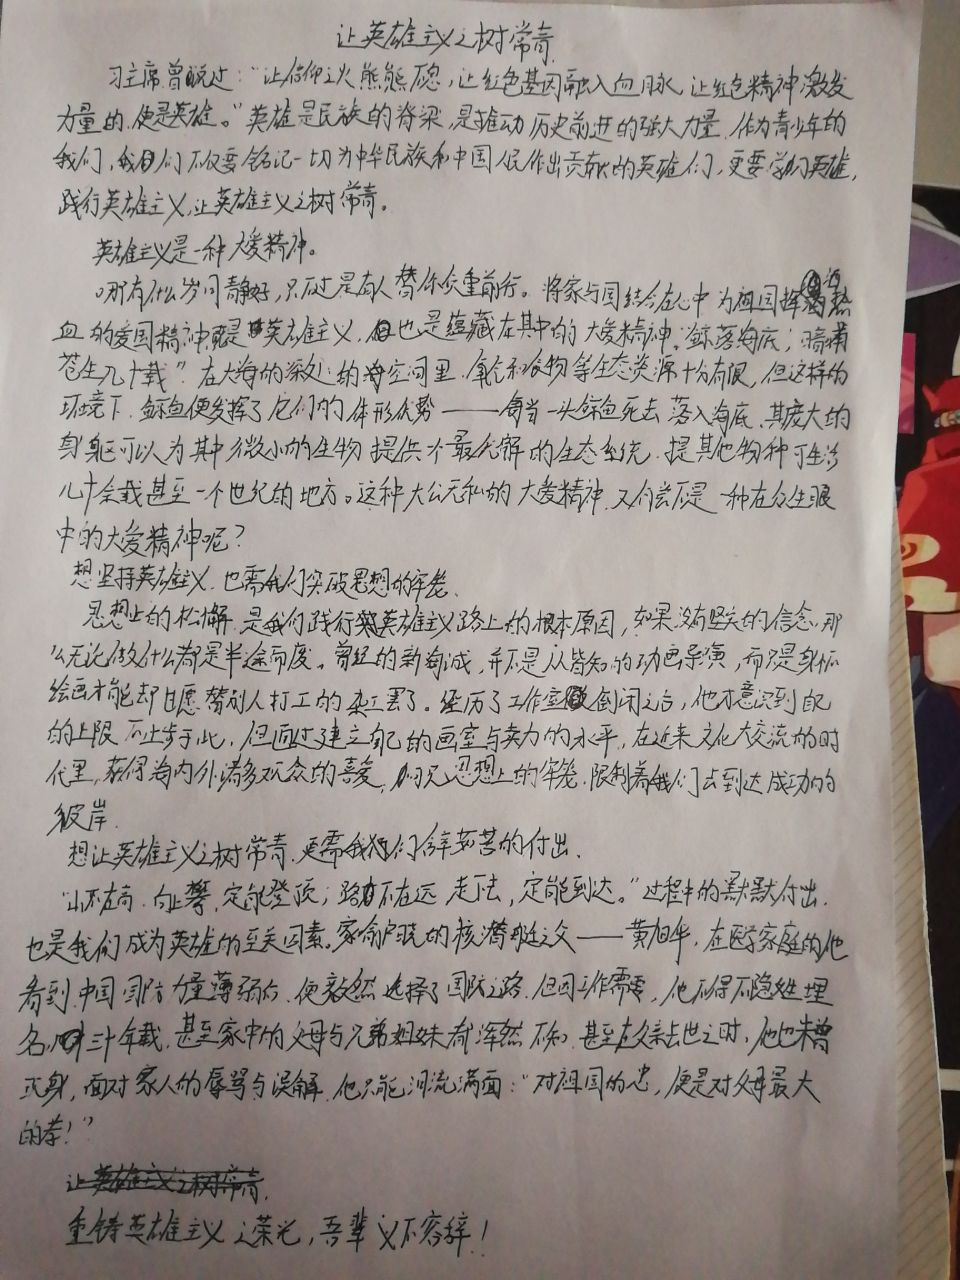 让英雄主义之树常青
习主席曾说过：“让信仰之火熊熊燃，让红色基因融入血脉，让红色精神激发
力量的，便是英雄。”英雄是民族的脊梁，是推动历史前进的强大力量，作为青少年的
我们，我们不仅要铭记一切为中华民族和中国人民作出贡献的英雄们，更要学习英雄，
践行英雄主义，让英雄主义之树常青。
英雄主义是一种大爱精神。
哪有什么岁月静好，只不过是有人替你负重前行。将家与国结合在心中为祖国挥洒热
血的爱国精神既是英雄主义，也是蕴藏在其中的大爱精神。鲸落海底；哺
苍生几十载”在大海的深处的海空间里，氧气和食物等生态资源十分有限，但这样的
环境下，鲸鱼便发挥了它们的体形优势——每当一头鲸鱼死去落入海底，其庞大的
身躯可以为其中微小的生物提供个最优解的生态系统，提其他物种可生活
几十余载甚至一个世纪的地方。这种大公无私的大爱精神，又何尝不是一种在众生眼
中的大爱精神呢？
想坚持英雄主义，也需我们突破思想的牢笼。
思想上的松懈，是我们践行英雄主义路上的根本原因，如果没有坚定的信念，那
么无论做什么都是半途而废。曾经的新海诚，并不是人皆知的动画导演，而只是身怀
绘画才能却甘愿替别人打工的杂工罢了。经历了工作室倒闭之后，他才意识到自己
的上限不止步于此，但通过建立自己的画室与卖力的水平，在近来文化大交流的时
代里，获得海内外诸多观众的喜爱，思想上的牢笼，限制着我们去到达成功的
彼岸。
想让英雄主义之树常青，更需我们含辛茹苦的付出。
“山不在高，向上攀，定能登顶；路不在远，走下去，定能到达。”过程中的默默付出，
也是我们成为英雄的至关因素。家喻户晓的核潜艇之父——黄旭华，在医学家庭的他
看到中国国防力量薄弱后，便毅然选择了国防之路，但因工作需要，他不得不隐姓埋
名三十年载，甚至家中的父母与兄弟姐妹都浑然不知，甚至在父亲去世之时，他也未曾
身，面对家人的辱骂与误解，他只能泪流满面：“对祖国的忠，便是对父母最大
的孝！”
让英雄主义之树常青，
重铸英雄主义之荣光，吾辈义不容辞！